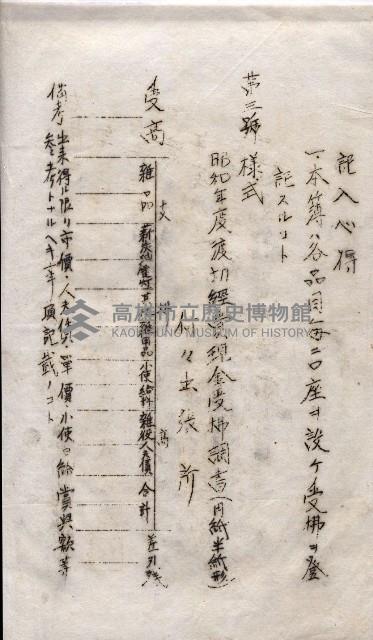 記入心得
一、本簿ハ各品目每ニ口座ヲ設ケ受拂ヲ登
記スルコト
第三號樣式
昭和年度渡切經費現金受拂調書(用紙半紙形)
何々出張所
受高
支
拂
高
雜品
薪炭油
其ノ他雜用品
小使給料
雜役人夫債
合計
差引殘
備考 出來得ル限リ市價、人夫供單價、小使日給賞與額等
參考トナルヘキ事項記載ノコト
高雄市立歷史博物館
KAOHSIUNG MUSEUM OF HISTORY